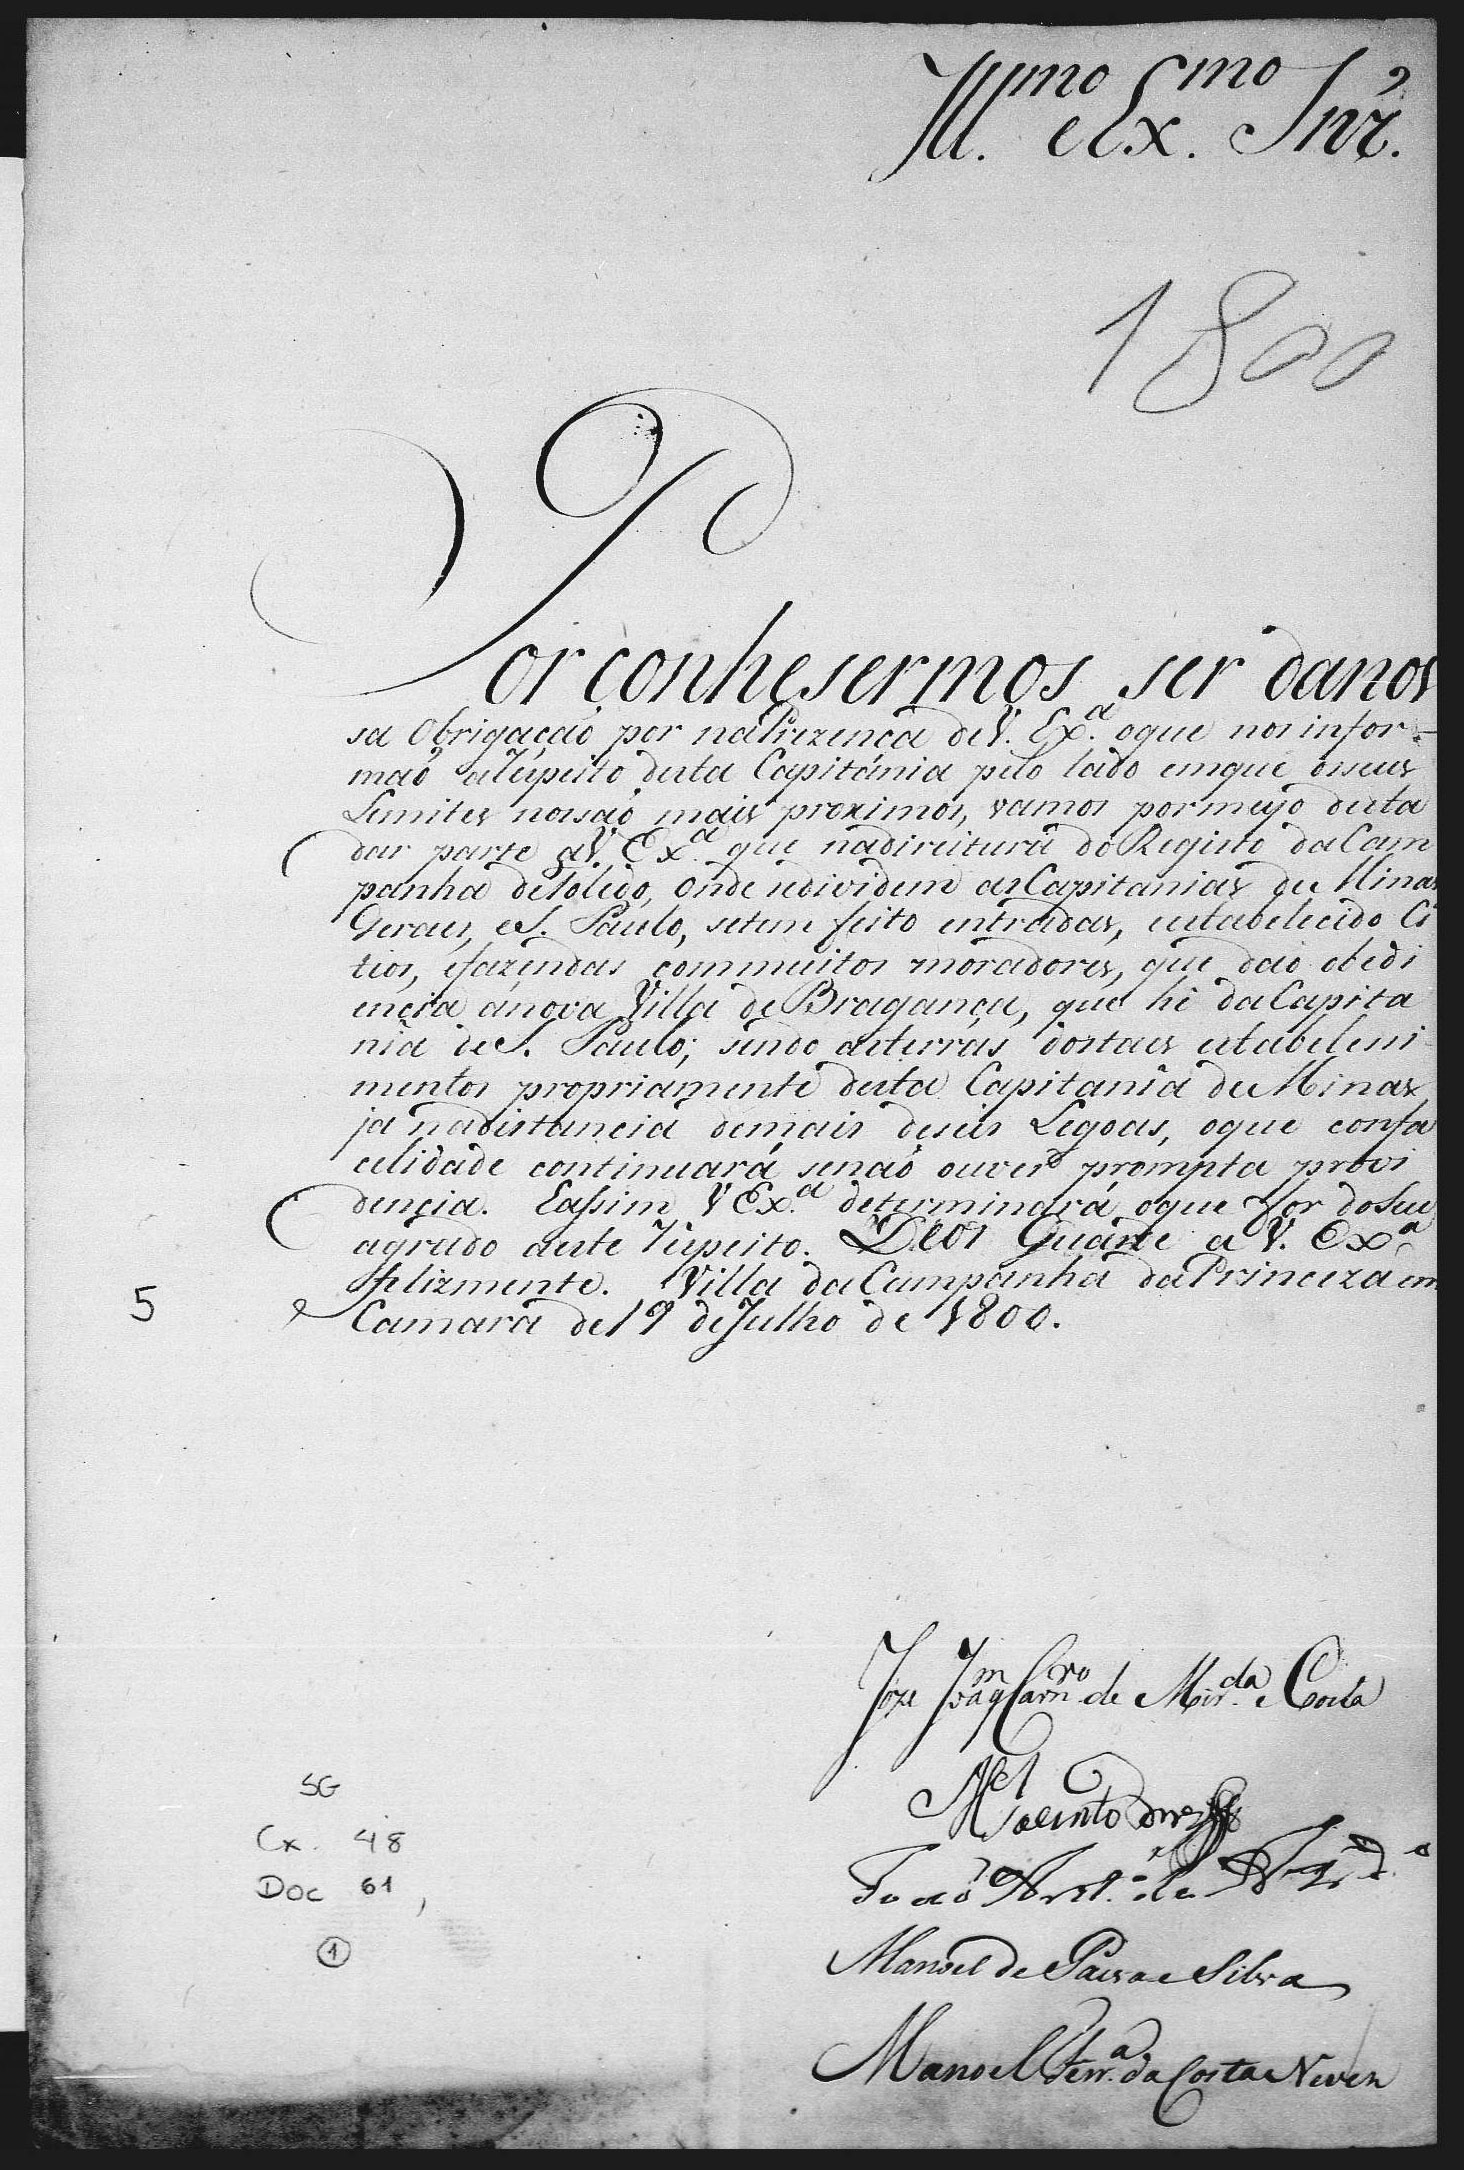 Ill.mo e Ex.mo Snr.
1800
Por conhesermos ser danos
sa Obrigaçaõ por naPrezença deV. Ex.a oque nos infor-
maõ aRespeito desta Capitánia pelo lado emque osseus
Limites nossaõ mais proximos, vamos pormeyo desta
dar parte aV. Ex.a que nadireitura do Registo daCam
panha deToledo, Onde sedividem asCapitanias de Minas
Geraes, eS. Paulo, setem feito entradas, estabelecido Ci
tios, efazendas commuitos moradores, que daõ obedi
encia ánova Villa de Bragança, que hé daCapita
nia deS. Paulo; sendo asterras dostaes estabelesi
mentos propriamente desta Capitania de Minas,
ja nadistancia demais deseis Legoas, oque confa
cilidade continuará senaõ ouver prompta provi
dencia. Eassim V Ex.a determinará oque for doSeu
agrado aeste Respeito. Deos Guarde a V. Ex.a
felizmente. Villa daCampanha daPrinceza em
Camara de19 deJulho de 1800.
5
Joze Joaq.m Carn.ro de Mir.da e Costa
M.el Jacinto
Joaõ
Manoel de Paiva e Silva
Manoel Ferr.a da Costa e Neves
SG
Cx. 48
Doc 61
1